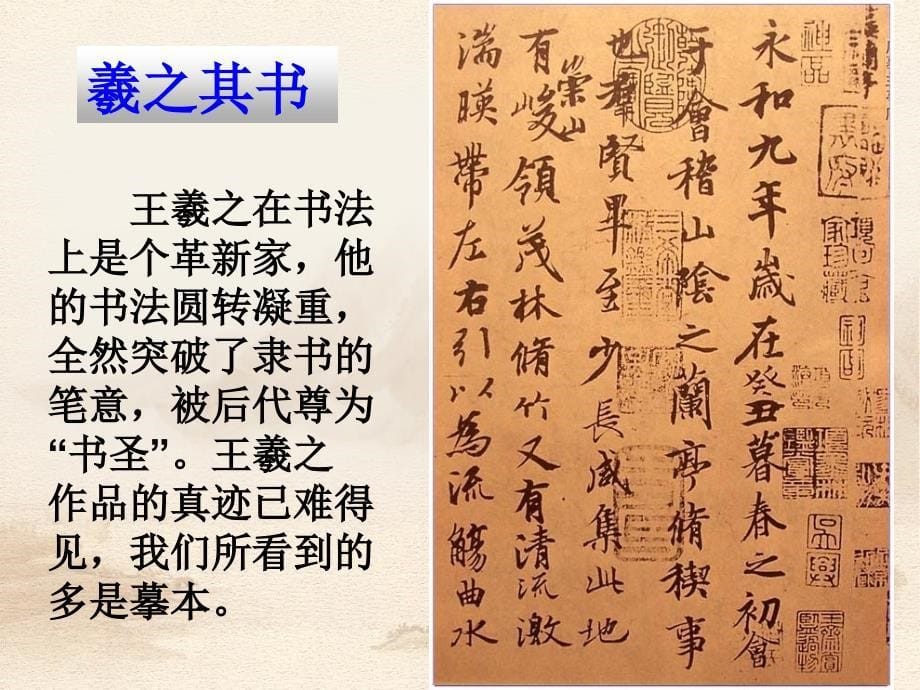 羲之其书
王羲之在书法
上是个革新家，他
的书法圆转凝重，
全然突破了隶书的
笔意，被后代尊为
“书圣”。王羲之
作品的真迹已难得
见，我们所看到的
多是摹本。
永和九年歲在癸丑暮春之初會
于會稽山陰之蘭亭脩稧事
也羣賢畢至少長咸集此地
有崇山峻領茂林脩竹又有清流激
湍暎帶左右引以為流觴曲水